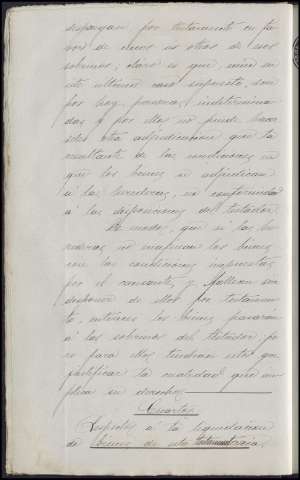 dispongan por testamento en fa-
vor de unos ú otros de sus
sobrinos; claro es que, unos en
este último caso supuesto, son
por hoy, personas indetermina-
das y por ello no puede hacer
sela otra adjudicacion que la
resultante de las condiciones en
que los bienes se adjudican
á las herederas, en conformidad
á las disposiciones del testador.
De modo, que si las he-
rederas no enajenan los bienes
con las condiciones impuestas
por el causante, y fallecen sin
disponer de ellos por testamen-
to, entonces los bienes pasarán
á los sobrinos del testador; pe-
ro para ello, tendrán estos que
justificar la cualidad que im-
plica su derecho.
Cuarto.
Respecto á la liquidacion
de bienes de esta testamentaría.